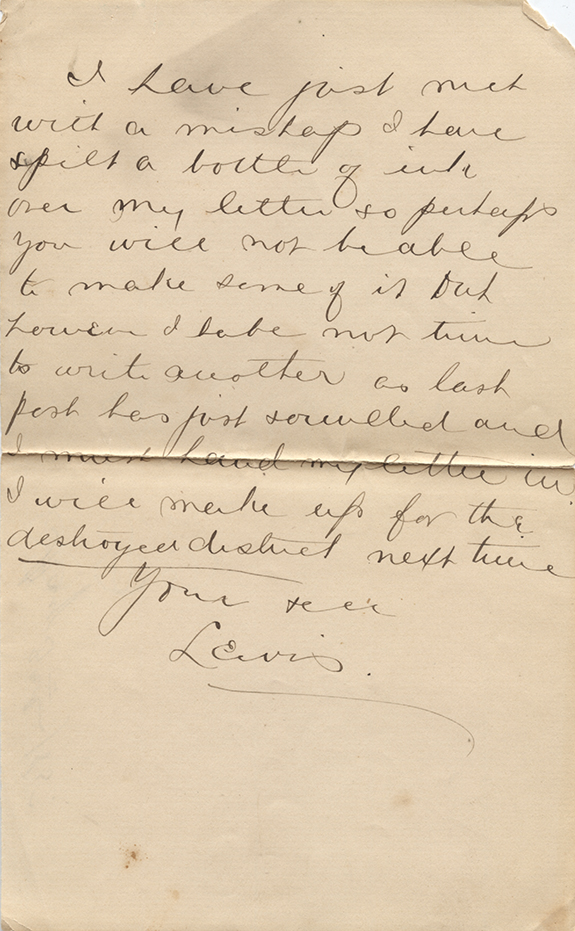 I have just met
with a mishap I have
spilt a bottle of ink
over my letter so perhaps
you will not be able
to make some of it out
however I have not time
to write another as last
post has just sounded and
I must hand my letter in
I will make up for the
destroyed district next time
Your
Lewis.